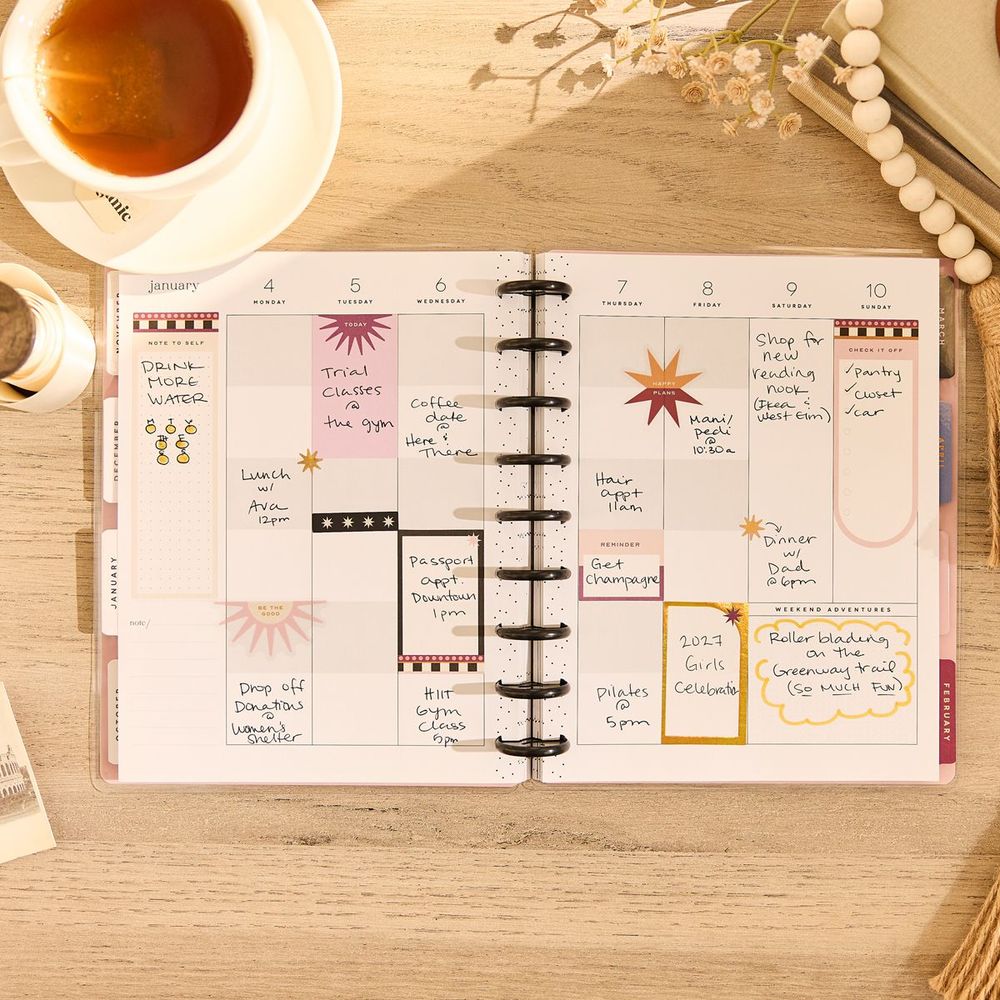 ganic
january
4
MONDAY
5
TUESDAY
6
WEDNESDAY
7
THURSDAY
8
FRIDAY
9
SATURDAY
10
SUNDAY
NOTE TO SELF
DRINK
MORE
WATER
note/
Lunch
w/
Ava
12pm
BE THE
GOOD
Drop off
Donations
@
Women's
Shelter
TODAY
Trial
Classes
@
the gym
Coffee
date
@
Here &
There
Passport
appt.
Downtown
1pm
HIIT
Gym
Class
5pm
Hair
appt
11am
REMINDER
Get
Champagne
Pilates
@
5pm
HAPPY
PLANS
Mani/
pedi
@
10:30a
2027
Girls
Celebration
Shop for
new
reading
nook
(Ikea &
West Elm)
Dinner
w/
Dad
@6pm
CHECK IT OFF
✓Pantry
✓Closet
✓car
WEEKEND ADVENTURES
Roller blading
on the
Greenway trail
(SO MUCH FUN)
NOVEMBER
DECEMBER
JANUARY
OCTOBER
MARCH
APRIL
FEBRUARY